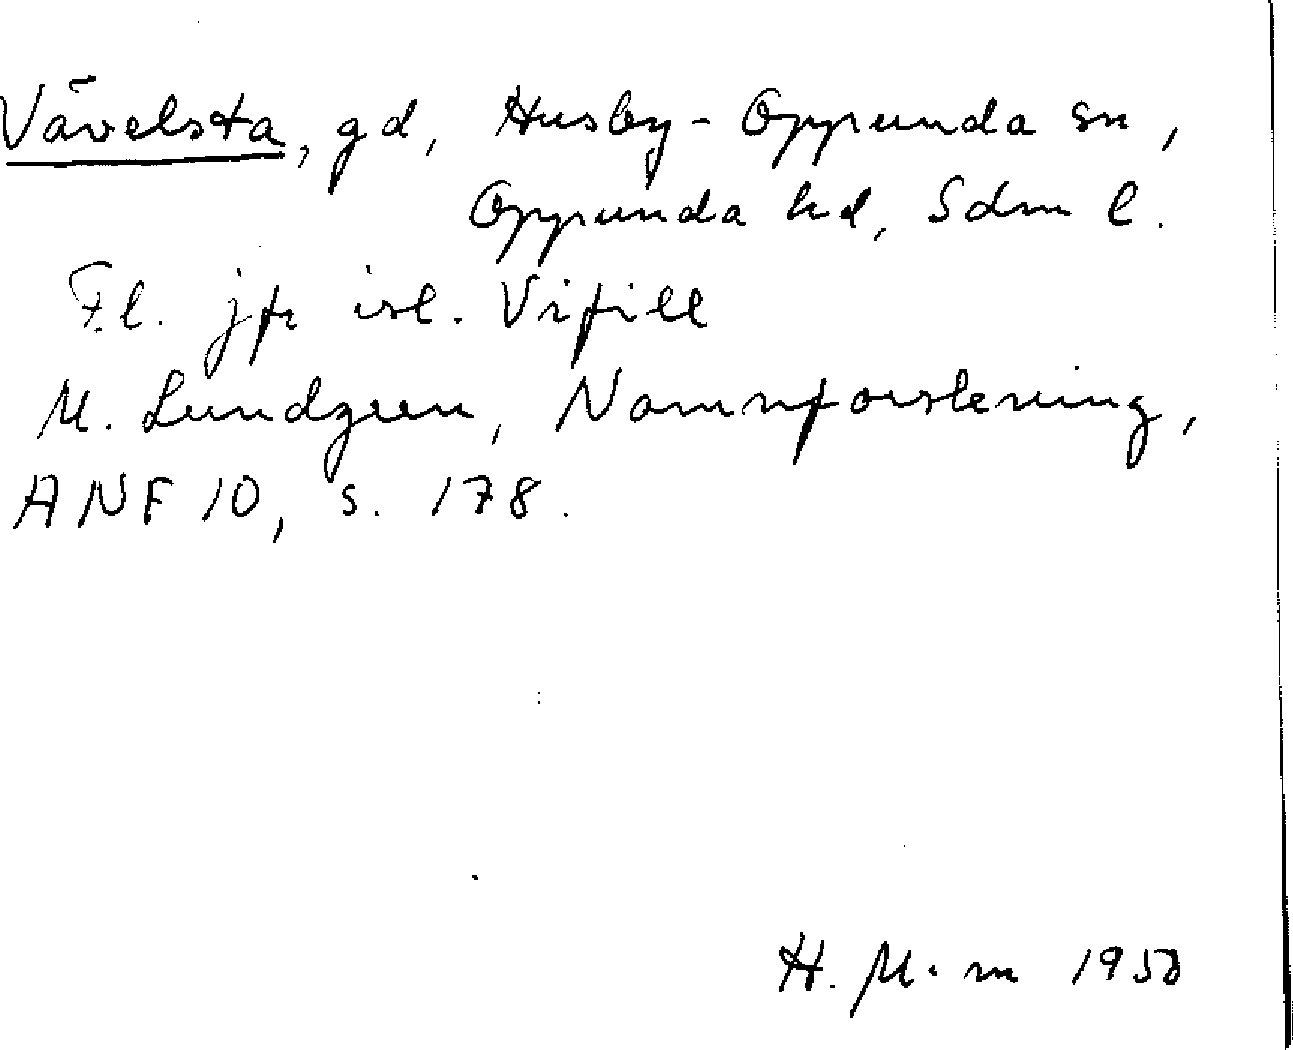 Vävelsta, gd, Husby-Oppunda sn,
Oppunda hd, Sdm l.
F.l. jfr isl. Vifill
M. Lundgren, Namnforskning,
ANF 10, s. 178.
H. M-m 1950